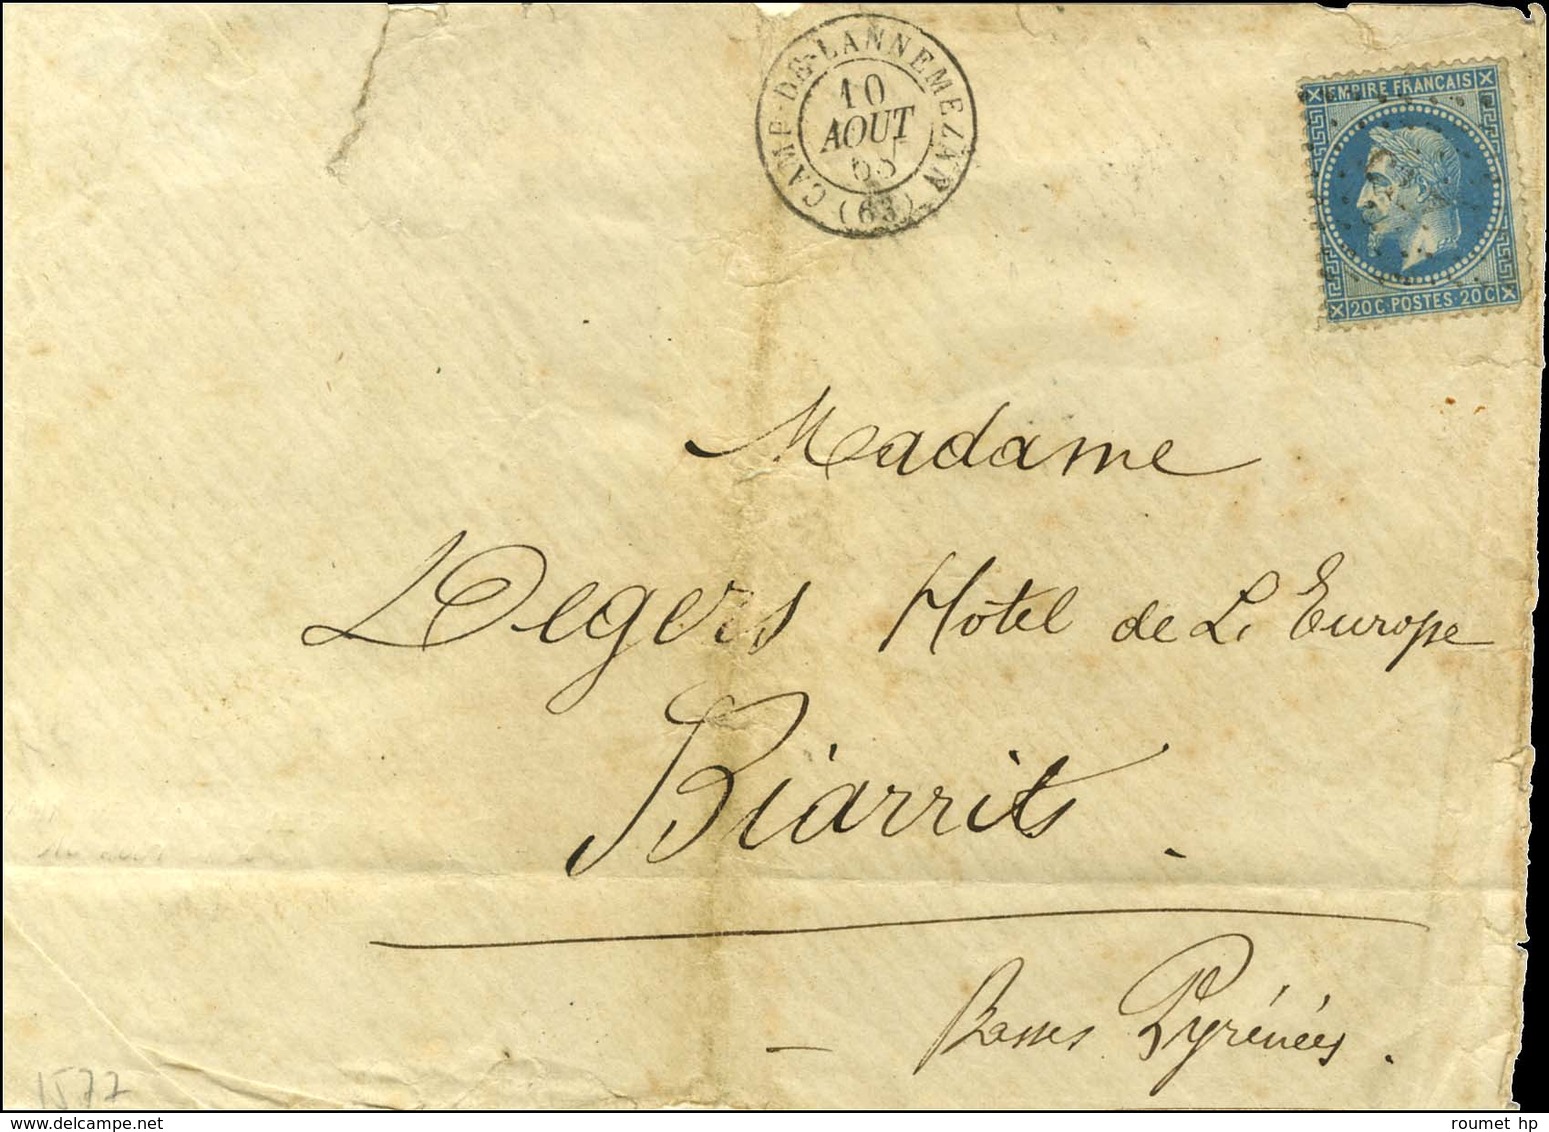 CAMP-DE-LANNEMEZAN (63)
10
AOUT
68
EMPIRE FRANCAIS
20 C POSTES 20 C
Madame
Degers Hôtel de L'Europe
Biarrits.
— Basses Pyrénées.
1577
roumet hp